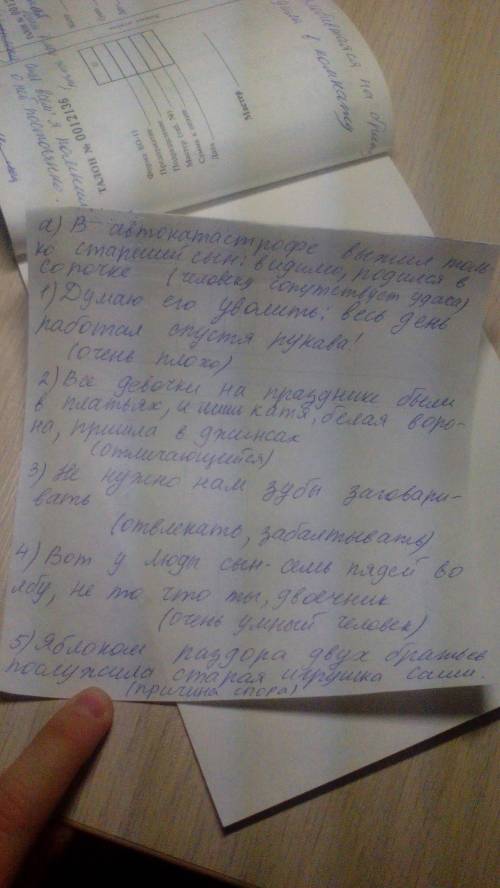 бивтаяся на
дом в комнату
ТАЛОН № 0012136
Форма БО-11
Приемщик
Получение
Мастер
Сдано в
Дата
Мастер
постоянно.
а) В автокатастрофе выжил толь
ко старший сын: видимо, родился в
сорочке (человеку сопутствует удача)
1) Думаю его уволить; весь день
работал спустя рукава!
(очень плохо)
2) Все девочки на празднике были
в платьях, и лишь катя, белая воро-
на, пришла в джинсах
(отличающийся)
3) Не нужно нам зубы заговари-
вать
(отвлекать, забалтывать)
4) Вот у Люды сын- семь пядей во
лбу, не то что ты, двоечник
(очень умный человек)
5) Яблоком раздора двух братьев
послужила старая игрушка Саши.
(причина спора)